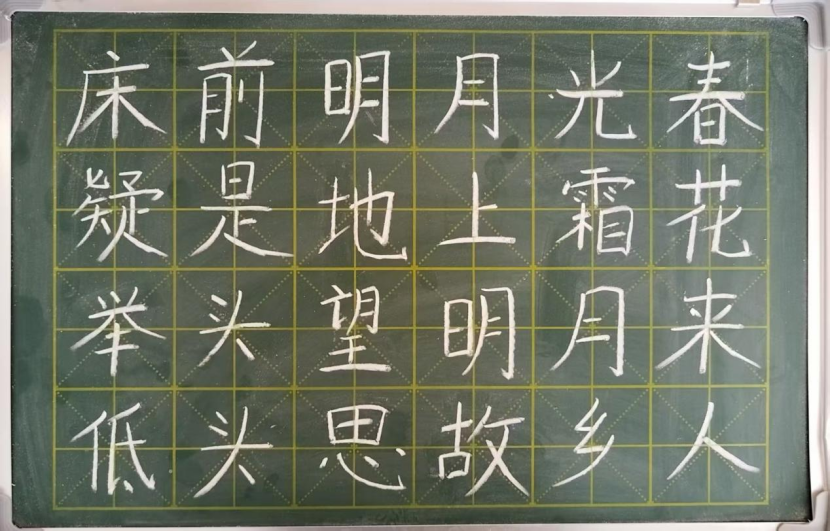 床前明月光春
疑是地上霜花
举头望明月来
低头思故乡人